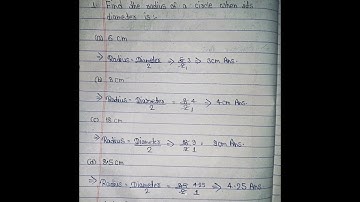 1. Find the radius of a circle when its
diameter is :-
(a) 6 cm
⇒ Radius = Diameter / 2 ⇒ 6 3 / 2 1 ⇒ 3cm Ans.
(b) 8 cm
⇒ Radius = Diameter / 2 = 8 4 / 2 1 ⇒ 4 cm Ans.
(c) 18 cm
⇒ Radius = Diameter / 2 18 9 / 2 1 = 9 cm Ans.
(d) 8.5 cm
⇒ Radius = Diameter / 2 = 4.25 / 1 ⇒ 4.25 Ans